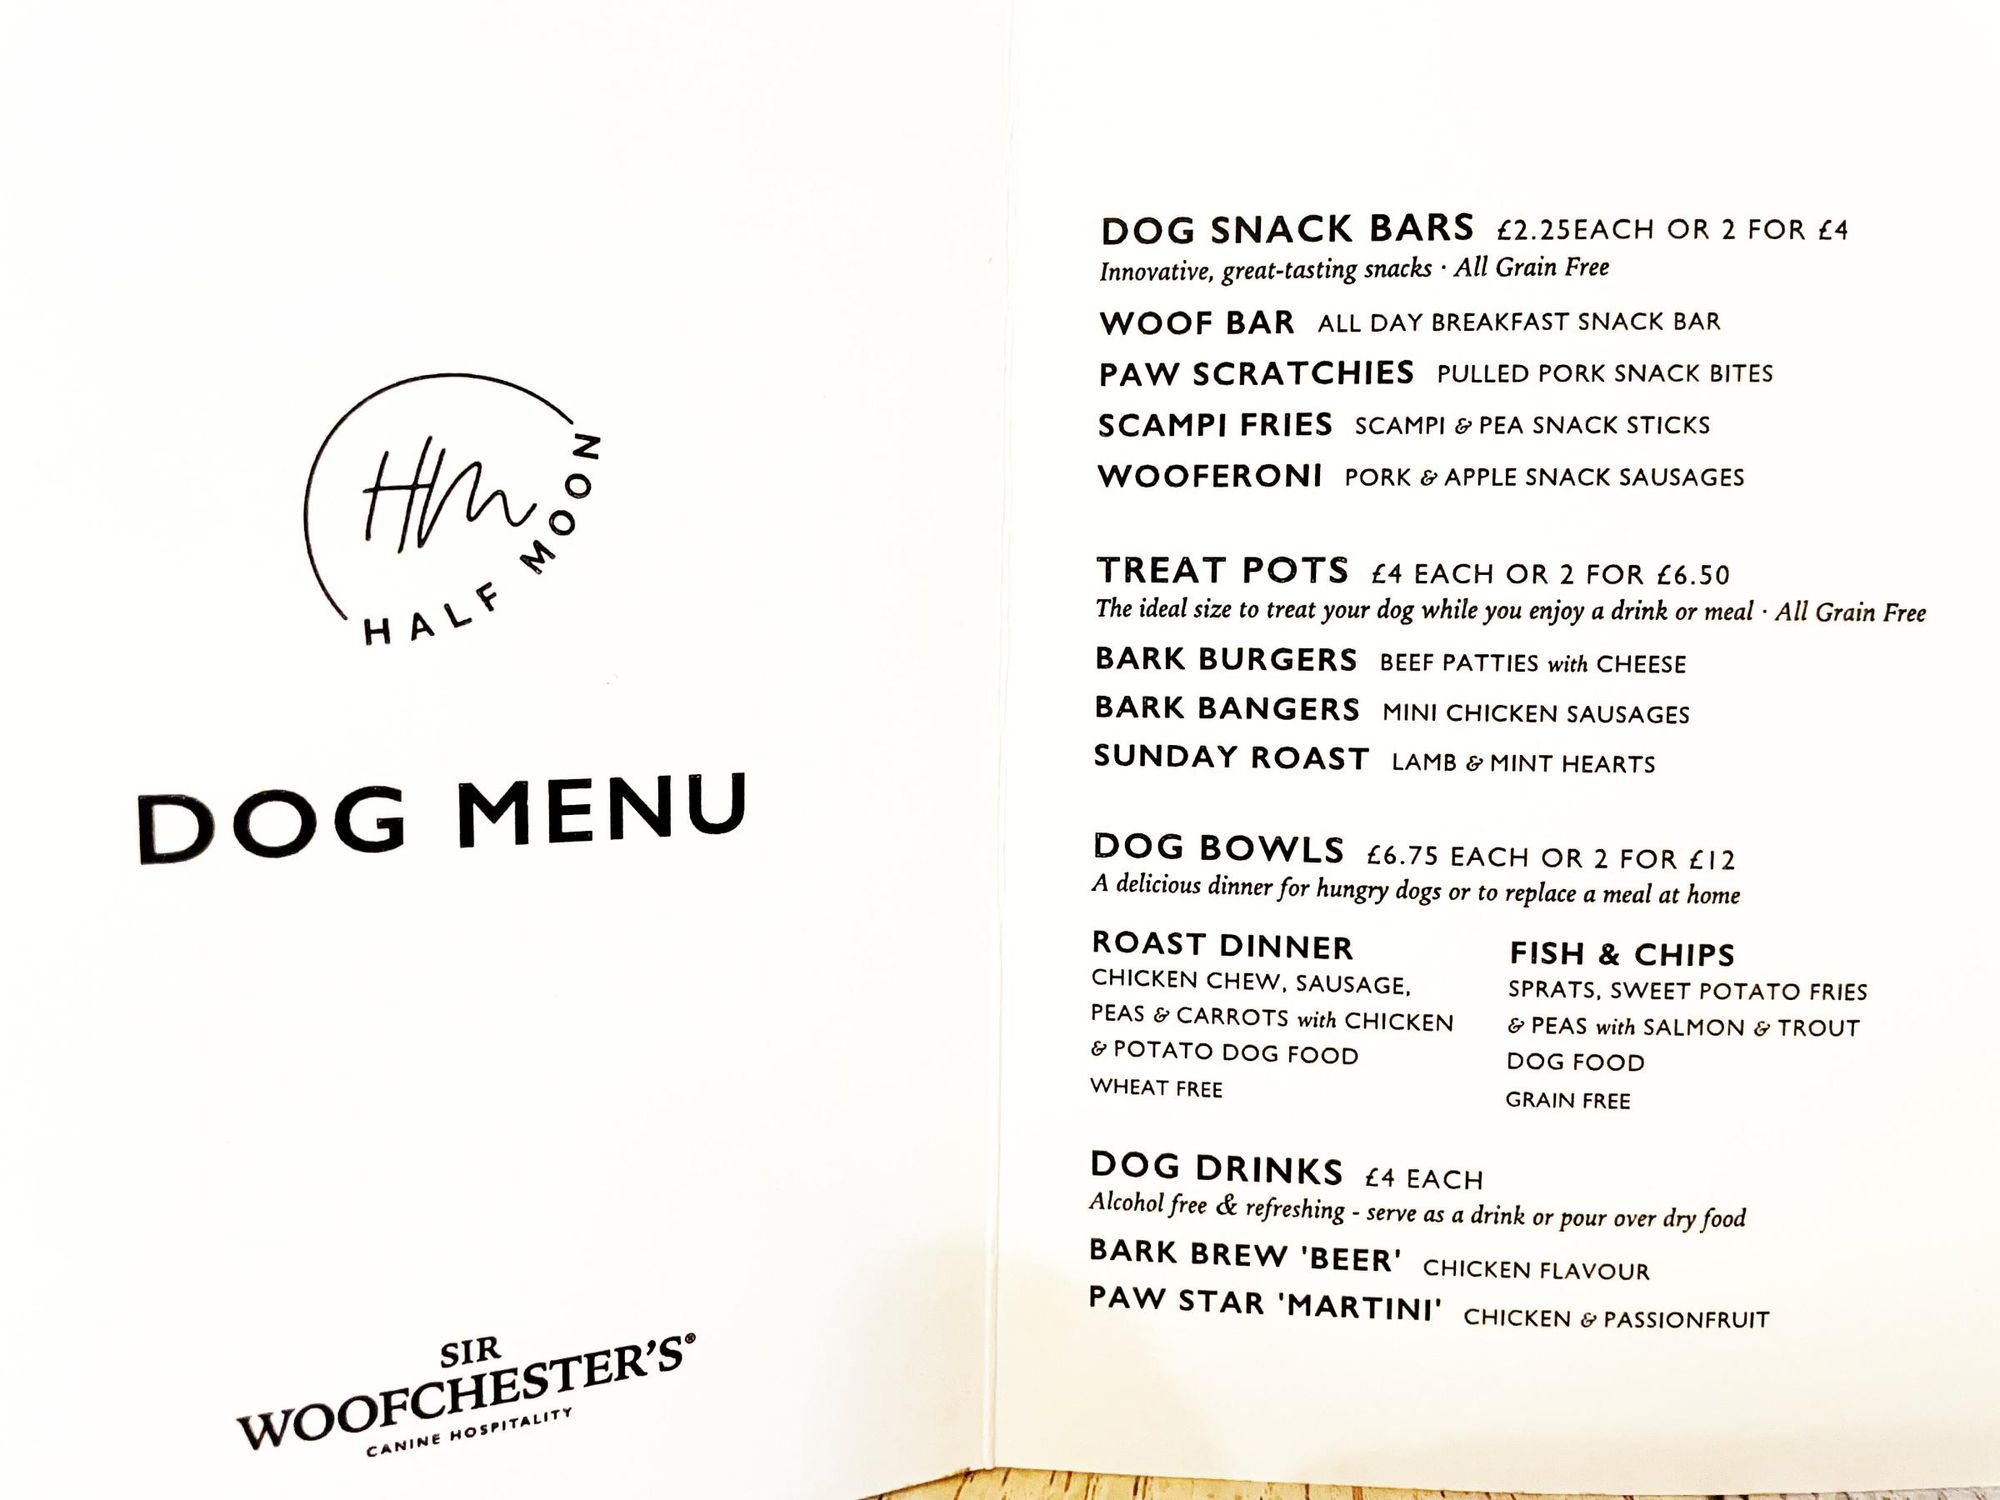 HM
HALF MOON
DOG MENU
SIR
WOOFCHESTER'S®
CANINE HOSPITALITY
DOG SNACK BARS £2.25EACH OR 2 FOR £4
Innovative, great-tasting snacks · All Grain Free
WOOF BAR ALL DAY BREAKFAST SNACK BAR
PAW SCRATCHIES PULLED PORK SNACK BITES
SCAMPI FRIES SCAMPI & PEA SNACK STICKS
WOOFERONI PORK & APPLE SNACK SAUSAGES
TREAT POTS £4 EACH OR 2 FOR £6.50
The ideal size to treat your dog while you enjoy a drink or meal · All Grain Free
BARK BURGERS BEEF PATTIES with CHEESE
BARK BANGERS MINI CHICKEN SAUSAGES
SUNDAY ROAST LAMB & MINT HEARTS
DOG BOWLS £6.75 EACH OR 2 FOR £12
A delicious dinner for hungry dogs or to replace a meal at home
ROAST DINNER
CHICKEN CHEW, SAUSAGE,
PEAS & CARROTS with CHICKEN
& POTATO DOG FOOD
WHEAT FREE
FISH & CHIPS
SPRATS, SWEET POTATO FRIES
& PEAS with SALMON & TROUT
DOG FOOD
GRAIN FREE
DOG DRINKS £4 EACH
Alcohol free & refreshing - serve as a drink or pour over dry food
BARK BREW 'BEER' CHICKEN FLAVOUR
PAW STAR 'MARTINI' CHICKEN & PASSIONFRUIT